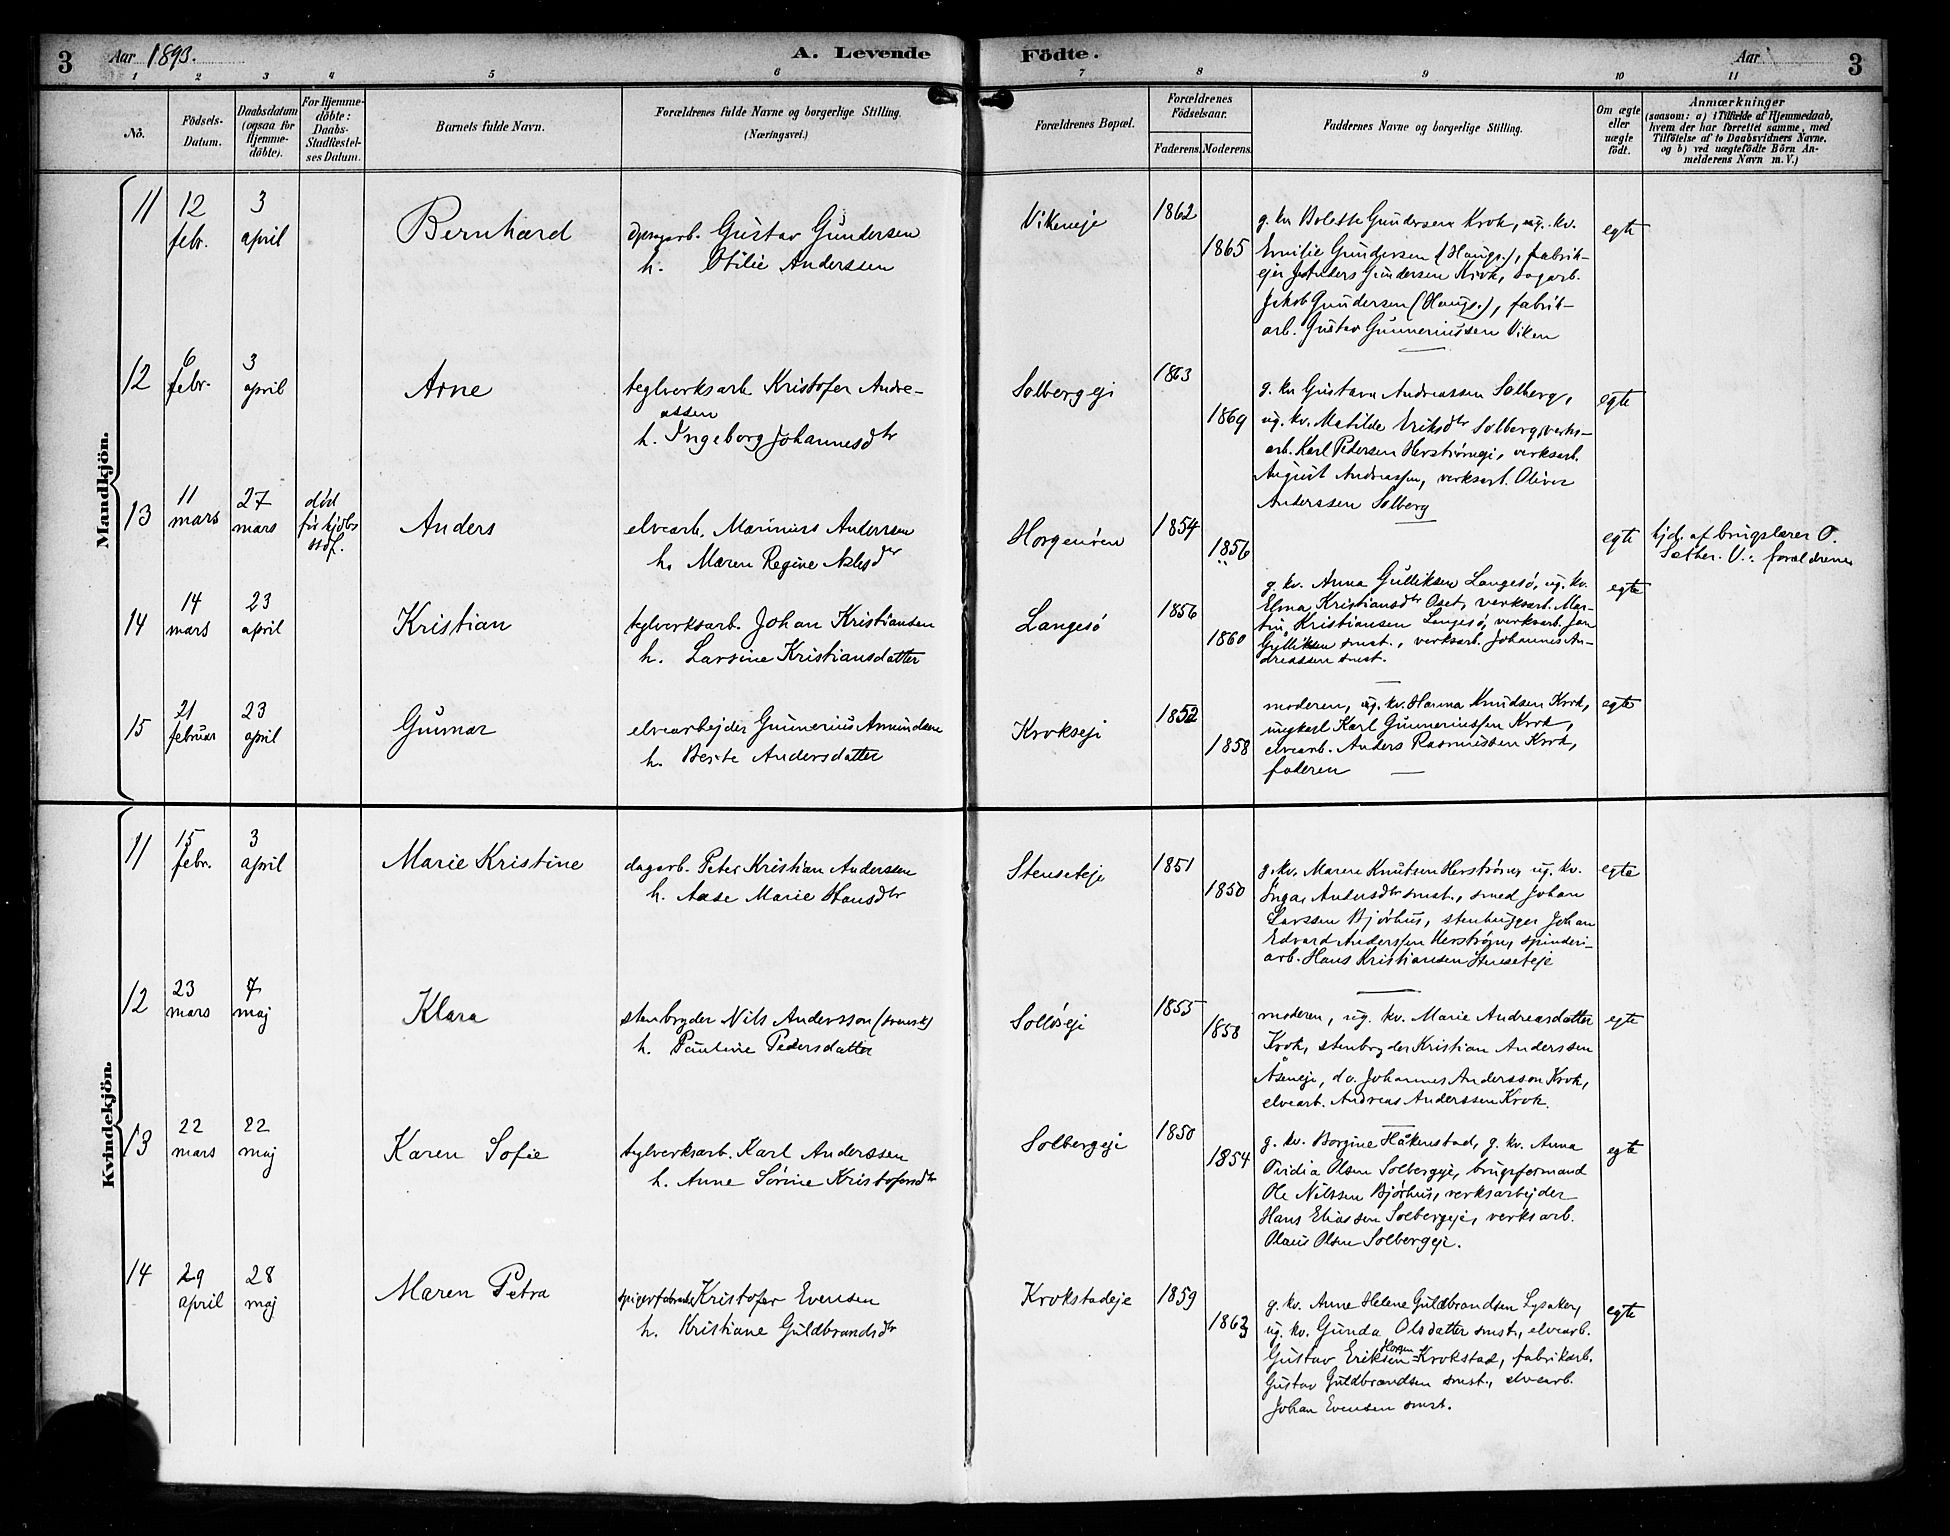 3 Aar 1893. A. Levende Födte. Aar 3
1 2 3 4 5 6 7 8 9 10 11
No.
Födsels-Datum.
Daabsdatum (ogsaa for Hjemme-döbte).
For Hjemme-döbte: Daabs-Stadfæstel-ses Datum.
Barnets fulde Navn.
Forældrenes fulde Navne og borgerlige Stilling.
(Næringsvei.)
Forældrenes Bopæl.
Forældrenes Födselsaar.
Faderens. Moderens.
Faddernes Navne og borgerlige Stilling.
Om ægte eller uægte födt.
Anmærkninger
(saasom: a) i Tilfælde af Hjemmedaab,
hvem der har forrettet samme, med
Tilföielse af to Daabsvidners Navne,
og b) ved uægtefödte Börn An-
melderens Navn m. V.)
Mandkjön.
11 12 febr. 3 april
Bernhard
Gustav Gundersen
h. Otilie Anderssen
Vikeneje
1862
1865
g. kv Bolette Gundersen Krok, ug. kv.
Emilie Gundersen (Haugs.), fabrik-
ejer Anders Gundersen Krok, sagarb.
Jakob Gundersen (Haugs.), fabrik-
arb. Gustav Gunneriussen Viken
egte
12 6 febr. 3 april
Arne
teglverksarb Kristofer Andre-
assen
h. Ingeborg Johannesdtr
Solbergeje
1863
1869
g. kv Gustava Andreassen Solberg,
ug. kv. Matilde Eriksdtr Solberg, verks-
arb. Karl Pedersen Herstrømeje, verksarb.
August Andreassen, verksarb. Oliver
Anderssen Solberg
egte
13 11 mars 27 mars
død før kjdbs stdf.
Anders
elvearb. Marinius Anderssen
h. Maren Regine
Horgenøren
1854
1856
egte
hjd. af brugslærer O.
Sæther. V.: forældrene
14 14 mars 23 april
Kristian
teglverksarb. Johan Kristiansen
h. Larsine Kristiansdatter
Langesø
1856
1860
g. kv. Anna Gulliksen Langesø, ug. kv.
Elma Kristiansdtr Oset, verksarb. Mar-
tin Kristiansen Langesø, verksarb. Jan
Gulliksen smst., verksarb. Johannes An-
dreassen smst.
egte
15 21 februar 23 april
Gunnar
elvearbejder Gunnerius Amundsen
h. Berte Andersdatter
Krokseje
1852
1858
moderen, ug. kv. Hanna Knudsen Krok,
ungkarl Karl Gunneriussen Krok,
elvearb. Anders Rasmussen Krok,
faderen
egte
Kvindekjön.
11 15 febr. 3 april
Marie Kristine
dagarb. Peter Kristian Anderssen
h. Aase Marie Hansdtr
Stenseteje
1851
1850
g. kv. Maren Knutsen Herstrøm, ug. kv.
Inga Andersdtr smst., smed Johan
Larssen Bjørhus, stenhugger Johan
Edvard Anderssen Herstrøm, spinderi-
arb. Hans Kristiansen Stenseteje
egte
12 23 mars 7 maj
Klara
stenbryder Nils Andersson (svensk)
h. Pauline Pedersdatter
Solløseje
1855
1858
moderen, ug. kv. Marie Andreasdatter
Krok, stenbryder Kristian Anderssen
Åseneje, do. Johannes Andersson Krok,
elvearb. Andreas Anderssen Krok.
egte
13 22 mars 22 maj
Karen Sofie
teglverksarb. Karl Anderssen
h. Anne Sørine Kristofersdtr
Solbergeje
1850
1854
g. kv. Borgine Håkenstad, g. kv. Anna
Ovidia Olsen Solbergeje, brugsformand
Ole Nilssen Bjørhus, verksarbejder
Hans Eliassen Solbergeje, verksarb.
Olaus Olsen Solbergeje.
egte
14 29 april 28 maj
Maren Petra
Kristofer Evensen
h. Kristiane Guldbrandsdtr
Krokstadeje
1859
1863
g. kv. Anne Helene Guldbrandsen Lysaker,
ug. kv. Gunda Olsdatter smst., elvearb.
Gustav Eriksen Horgen Krokstad, fabrikarb.
Gustav Guldbrandsen smst., elvearb.
Johan Evensen smst.
egte